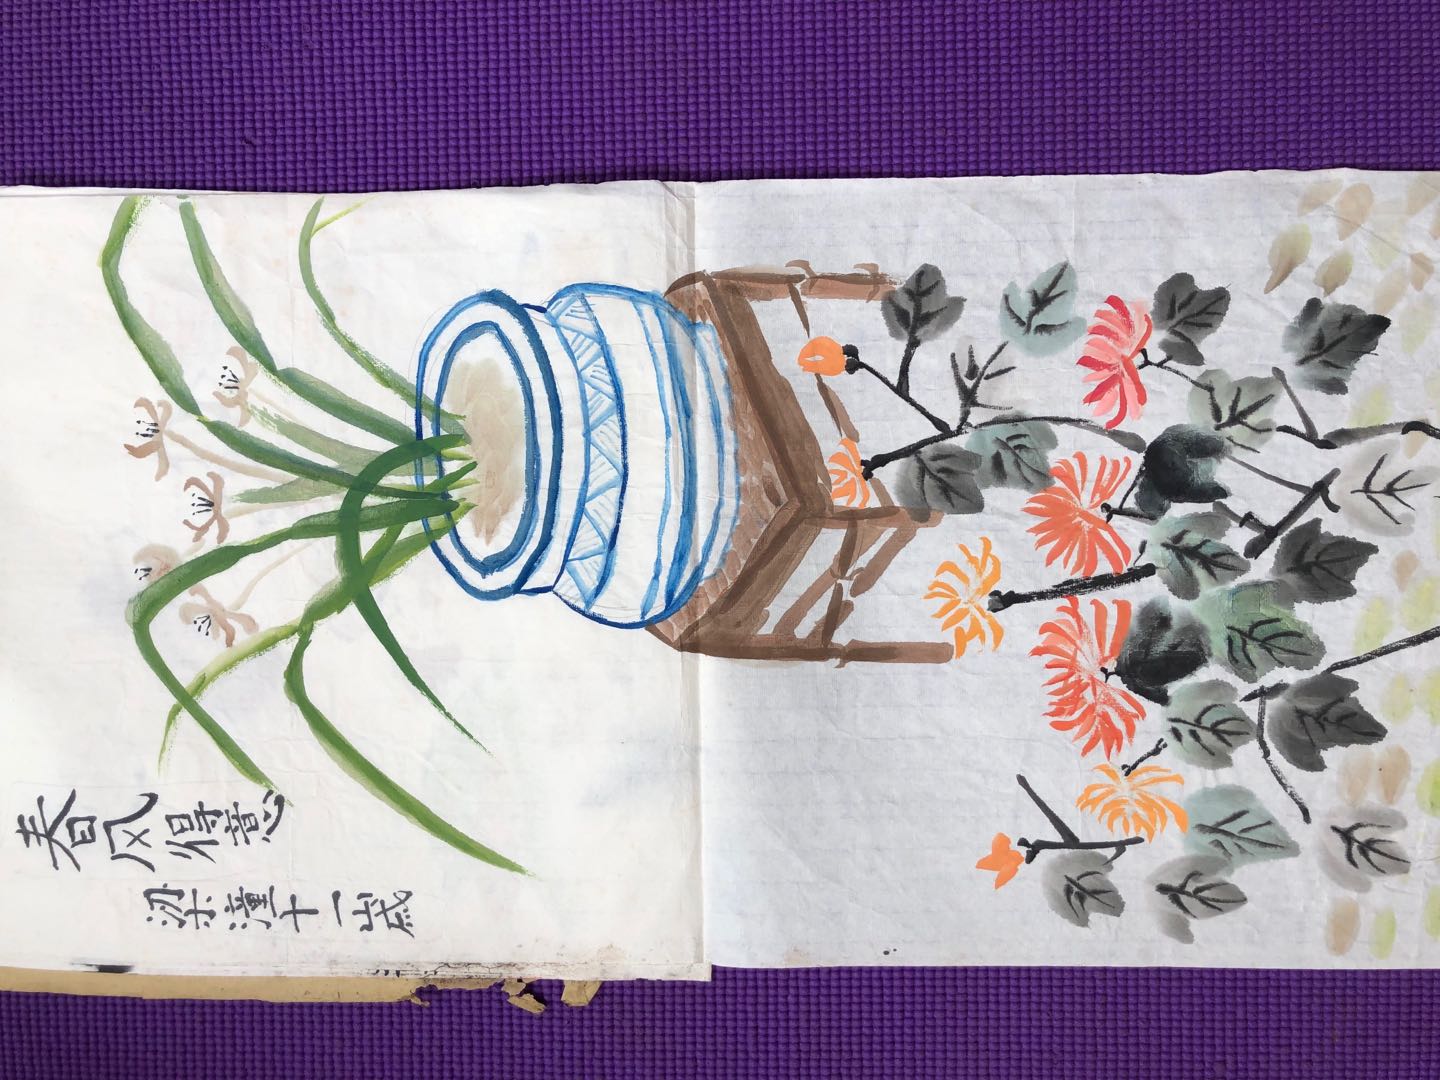 春风得意
梁潼十一岁